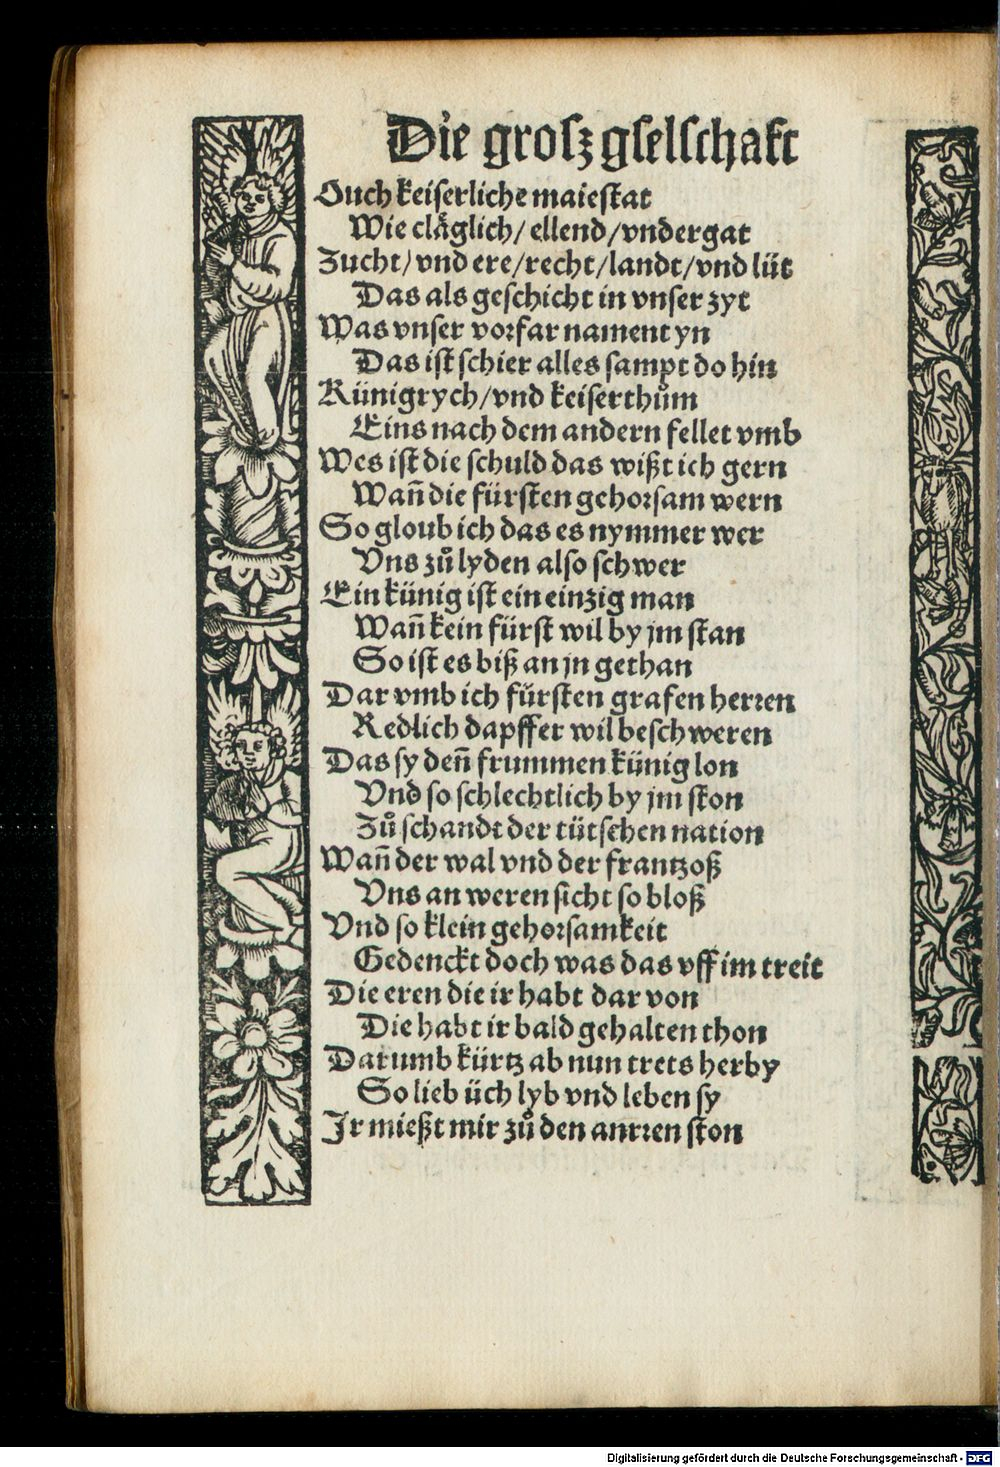 Die grosz gselschafft
Ouch keiserliche maiestat
Wie cläglich/ ellend/vndergat
Zucht/vnd ere/recht/landt/vnd lüt
Das als geschicht in vnser zyt
Was vnser vorfar nament yn
Das ist schier alles sampt do hin
Künigrych/vnd keiserthům
Eins nach dem andern fellet vmb
Wes ist die schuld das wißt ich gern
Wañ die fürsten gehorsam wern
So gloub ich das es nymmer wer
Vns zů lyden also schwer
Ein künig ist ein einzig man
Wañ kein fürst wil by jm stan
So ist es biß an jn gethan
Dar vmb ich fürsten grafen herren
Redlich dapffer wil beschweren
Das sy deñ frummen künig lon
Vnd so schlechtlich by jm ston
Zů schandt der tütschen nation
Wañ der wal vnd der frantzoß
Vns an weren sicht so bloß
Vnd so klein gehorsamkeit
Gedenckt doch was das vff im treit
Die eren die ir habt dar von
Die habt ir bald gehalten thon
Darumb kürtz ab nun trets herby
So lieb üch lyb vnd leben sy
Jr mießt mir zů den narren ston
Digitalisierung gefördert durch die Deutsche Forschungsgemeinschaft - DFG